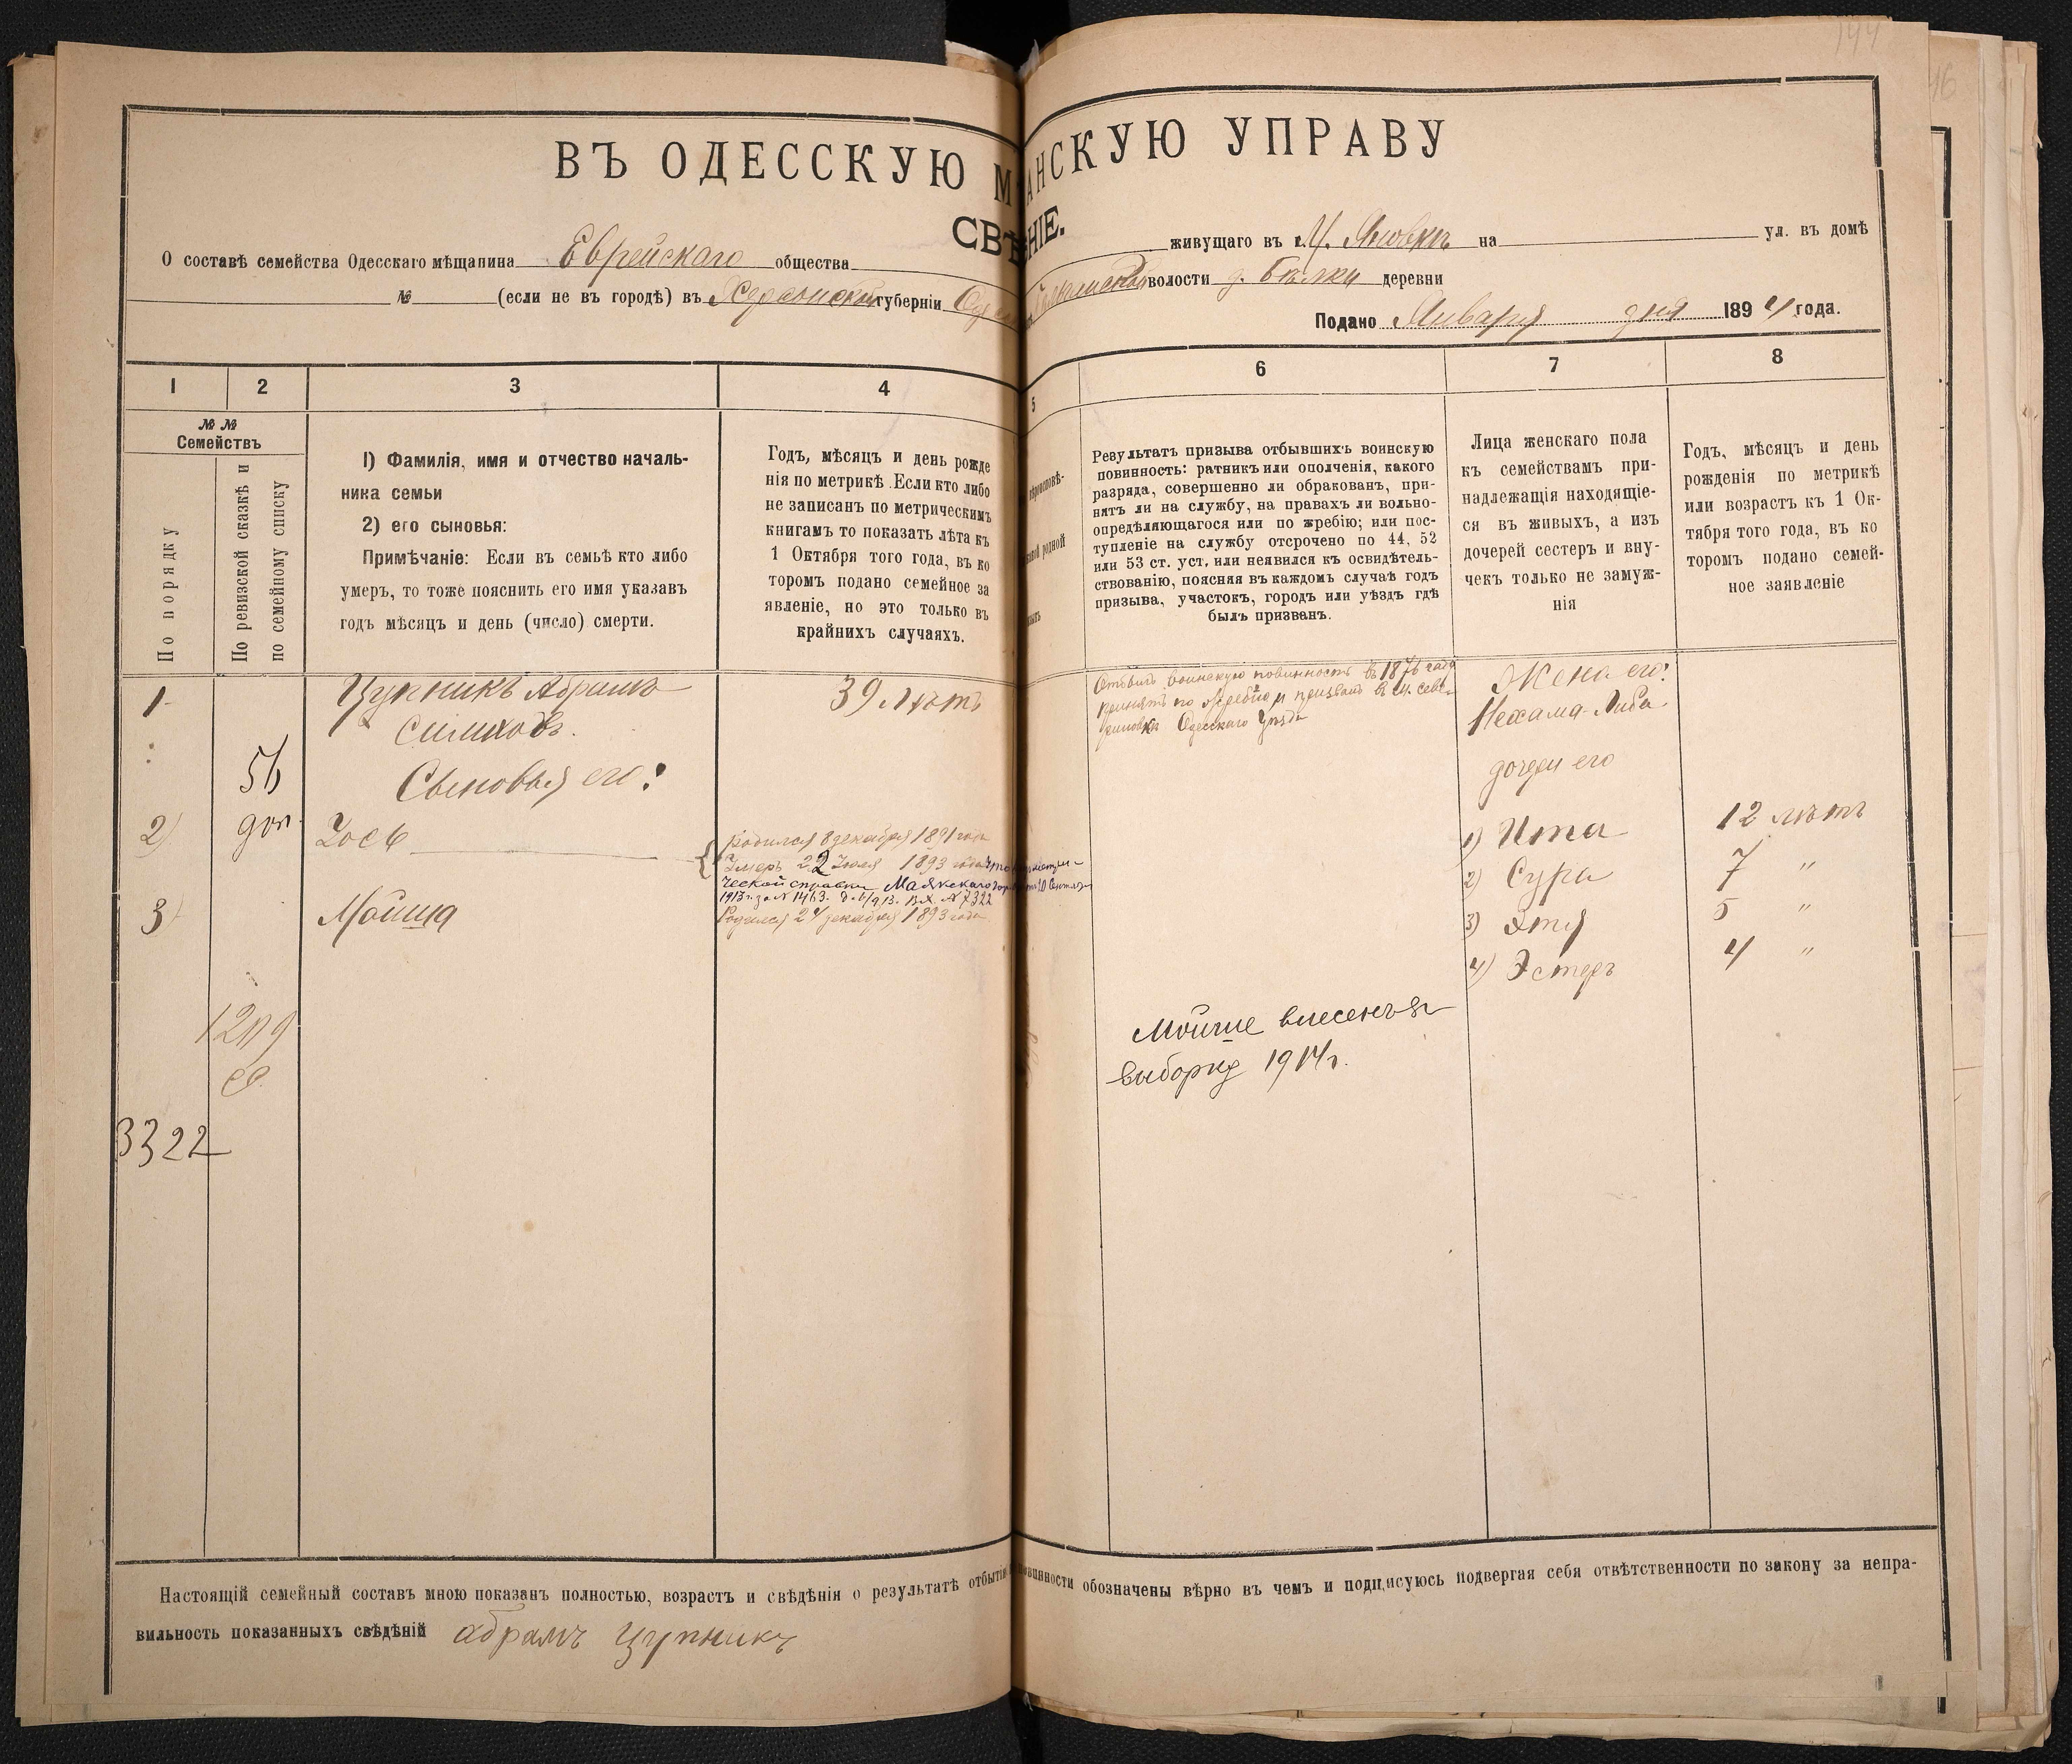 144
46
ВЪ ОДЕССКУЮ М АНСКУЮ УПРАВУ
СВѢ НІЕ.
О составѣ семейства Одесскаго мѣщанина Еврейскаго общества живущаго въ М. Яновкѣ на ул. въ домѣ
№ (если не въ городѣ) въ Херсонской губерніи волости д. Бѣлки деревни
Подано Января дня 1894 года.
1 2 3 4 5 6 7 8
№ № Семействъ
По порядку
По ревизской сказкѣ и по семейному списку
1) Фамилія, имя и отчество началь-
ника семьи
2) его сыновья:
Примѣчаніе: Если въ семьѣ кто либо
умеръ, то тоже пояснить его имя указавъ
годъ мѣсяцъ и день (число) смерти.
Годъ, мѣсяцъ и день рожде
нія по метрикѣ. Если кто либо
не записанъ по метрическимъ
книгамъ то показать лѣта къ
1 Октября того года, въ ко
торомъ подано семейное за
явленіе, но это только въ
крайнихъ случаяхъ.
Результатъ призыва отбывшихъ воинскую
повинность: ратникъ или ополченія, какого
разряда, совершенно ли обракованъ, при-
нятъ ли на службу, на правахъ ли вольно-
опредѣляющагося или по жребію; или пос-
тупленіе на службу отсрочено по 44, 52
или 53 ст. уст. или неявился къ освидѣтель-
ствованію, поясняя въ каждомъ случаѣ годъ
призыва, участокъ, городъ или уѣздъ гдѣ
былъ призванъ.
Лица женскаго пола
къ семействамъ при-
надлежащія находящіе-
ся въ живыхъ, а изъ
дочерей сестеръ и вну-
чекъ только не замуж-
нія
Годъ, мѣсяцъ и день
рожденія по метрикѣ
или возрастъ къ 1 Ок-
тября того года, въ ко
торомъ подано семей-
ное заявленіе
1 Цупникъ Абрамъ
Симховъ.
39 лѣтъ
Отбылъ воинскую повинность въ 1876 году
принятъ по жребію и призванъ въ м. Севе-
риновкѣ Одесскаго уѣзда
Жена его:
Нехама-Либа.
56
доп.
Сыновья его:
дочери его
2) Іосъ
родился 8 декабря 1891 года
Умеръ 22 Іюля 1893 года
ческой справки Маякскаго
1913 г. за № 1463.
Вх. № 7322
3) Мойша
Родился 24 декабря 1893 года
1) Ита 12 лѣтъ
2) Сура 7 "
3) Этя 5 "
4) Эстеръ 4 "
3322
Мойше внесенъ въ
выборку 1914 г.
Настоящій семейный составъ мною показанъ полностью, возрастъ и свѣдѣнія о результатѣ отбытія повинности обозначены вѣрно въ чемъ и подписуюсь подвергая себя отвѣтственности по закону за непра-
вильность показанныхъ свѣдѣній абрамъ цупникъ